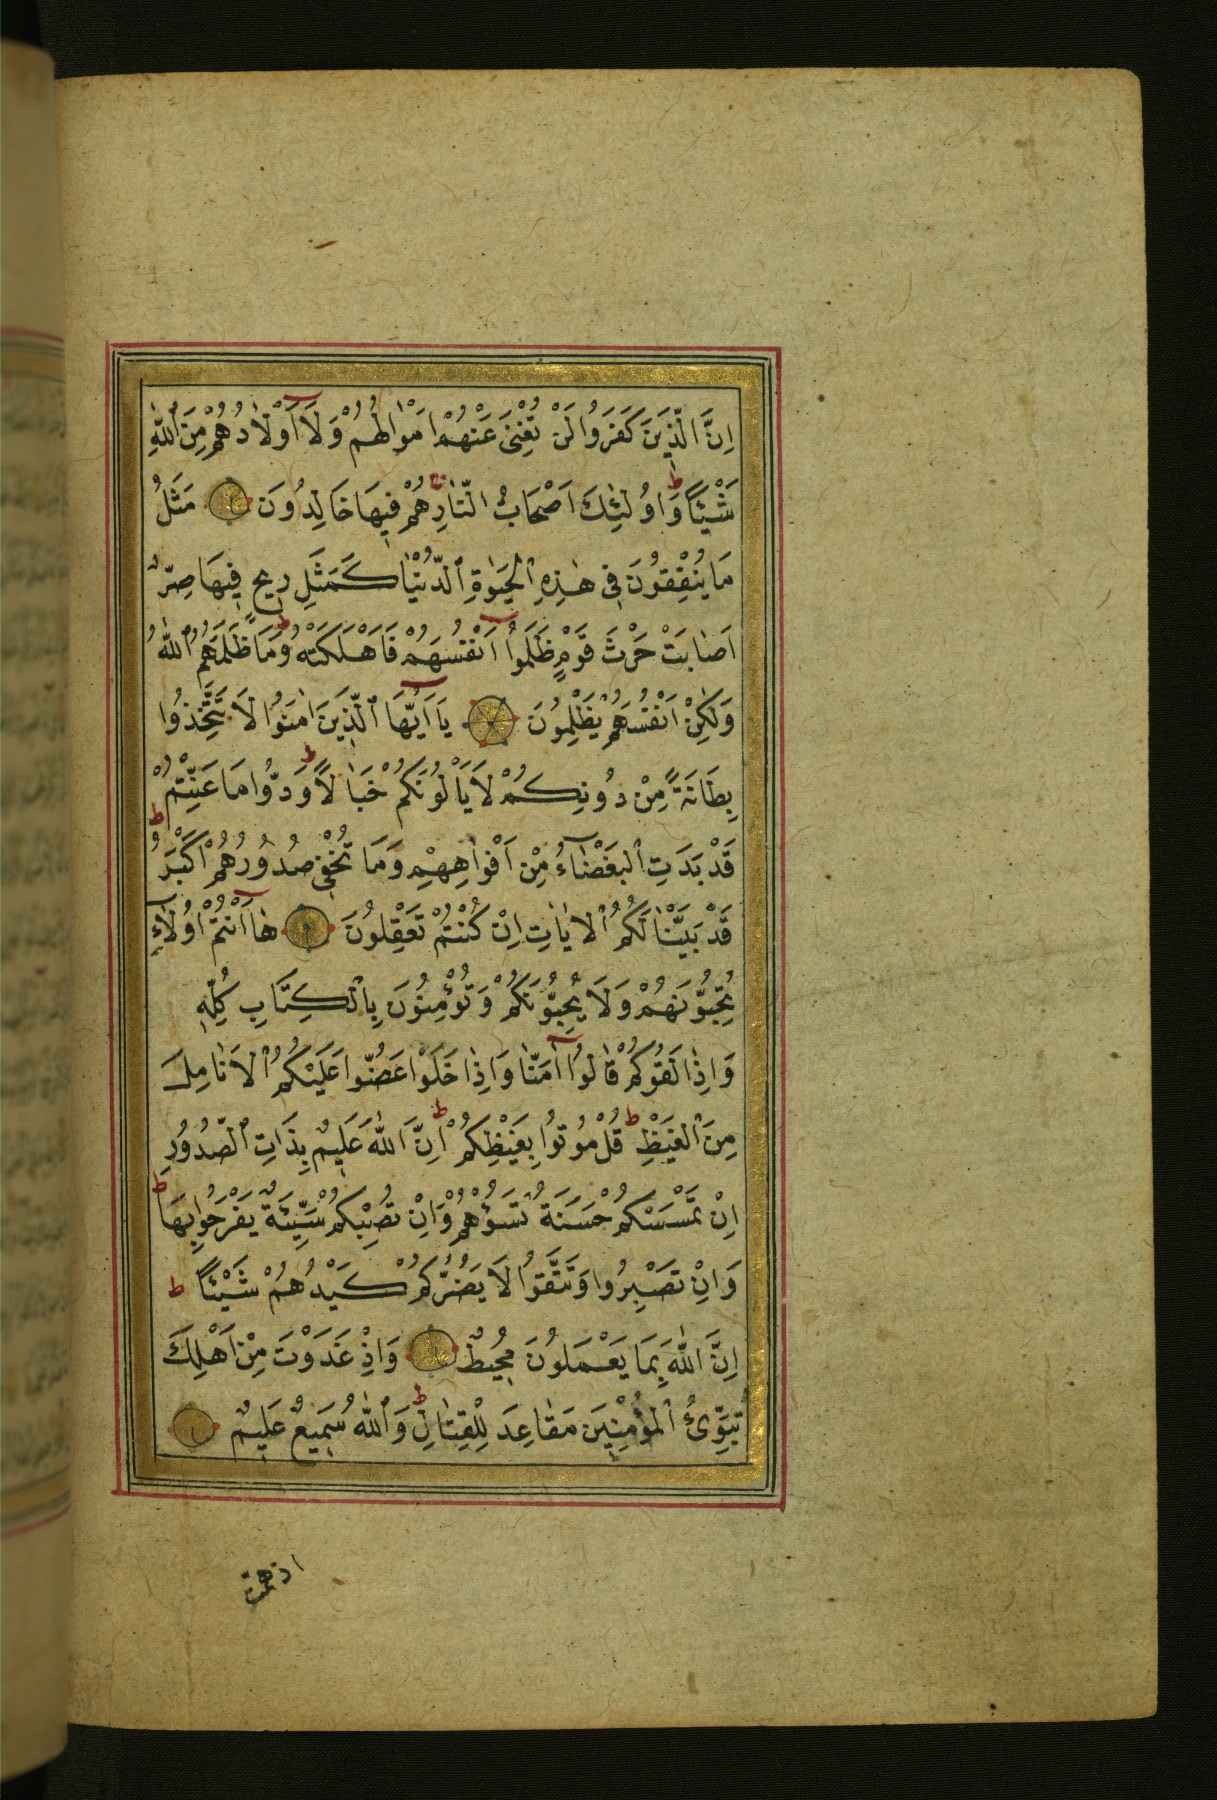 اِنَّ الَّذِينَ كَفَرُوا لَنْ تُغْنِىَ عَنْهُمْ اَمْوَالُهُمْ وَلَا اَوْلَادُهُمْ مِنَ اللّٰهِ
شَيْئًا ط وَاُولٰئِكَ اَصْحَابُ النَّارِ هُمْ فِيهَا خَالِدُونَ مَثَلُ
مَا يُنْفِقُونَ فِى هٰذِهِ الْحَيٰوةِ الدُّنْيَا كَمَثَلِ رِيحٍ فِيهَا صِرٌّ
اَصَابَتْ حَرْثَ قَوْمٍ ظَلَمُوا اَنْفُسَهُمْ فَاَهْلَكَتْهُ ط وَمَا ظَلَمَهُمُ اللّٰهُ
وَلٰكِنْ اَنْفُسَهُمْ يَظْلِمُونَ يَا اَيُّهَا الَّذِينَ اٰمَنُوا لَا تَتَّخِذُوا
بِطَانَةً مِنْ دُونِكُمْ لَا يَاْلُونَكُمْ خَبَالًا ط وَدُّوا مَا عَنِتُّمْ ط
قَدْ بَدَتِ الْبَغْضَاءُ مِنْ اَفْوَاهِهِمْ وَمَا تُخْفِى صُدُورُهُمْ اَكْبَرُ
قَدْ بَيَّنَّا لَكُمُ الْاٰيَاتِ اِنْ كُنْتُمْ تَعْقِلُونَ هَا اَنْتُمْ اُولَاءِ
تُحِبُّونَهُمْ وَلَا يُحِبُّونَكُمْ وَتُؤْمِنُونَ بِالْكِتَابِ كُلِّهِ
وَاِذَا لَقُوكُمْ قَالُوا اٰمَنَّا وَاِذَا خَلَوْا عَضُّوا عَلَيْكُمُ الْاَنَامِلَ
مِنَ الْغَيْظِ ط قُلْ مُوتُوا بِغَيْظِكُمْ ط اِنَّ اللّٰهَ عَلِيمٌ بِذَاتِ الصُّدُورِ
اِنْ تَمْسَسْكُمْ حَسَنَةٌ تَسُؤْهُمْ وَاِنْ تُصِبْكُمْ سَيِّئَةٌ يَفْرَحُوا بِهَا ط
وَاِنْ تَصْبِرُوا وَتَتَّقُوا لَا يَضُرُّكُمْ كَيْدُهُمْ شَيْئًا ط
اِنَّ اللّٰهَ بِمَا يَعْمَلُونَ مُحِيطٌ وَاِذْ غَدَوْتَ مِنْ اَهْلِكَ
تُبَوِّئُ الْمُؤْمِنِينَ مَقَاعِدَ لِلْقِتَالِ ط وَاللّٰهُ سَمِيعٌ عَلِيمٌ
اذ همت